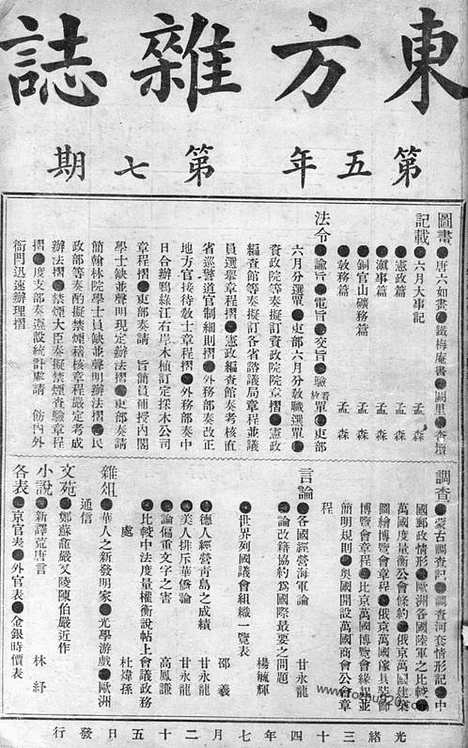 東方雜誌
第五年第七期
圖畫●唐六如畫●鐵梅庵書●闕里●杏壇
記載●六月大事記 孟森
●憲政篇 孟森
●滇事篇
●銅官山礦務篇 孟森
●教務篇 孟森
法令●諭旨●電旨●交旨●驗看單●吏部
六月分選單●吏部六月分教職選單●
資政院等奏擬訂資政院院章摺●憲政
編查館等奏擬訂各省諮議局章程並議
員選舉章程摺●憲政編查館奏考核直
省巡警道官制細則摺●外務部奏改正
地方官接待教士章程摺●外務部奏中
日合辦鴨綠江右岸木植訂定採木公司
章程摺●吏部奏請 旨簡員補授內閣
學士缺並聲明現定辦法摺●吏部奏請
簡翰林院學士員缺並聲明辦法摺●民
政部等奏酌擬禁煙稽核章程嚴定考成
辦法摺●禁煙大臣奏擬禁煙查驗章程
摺●度支部奏遵設統計處請 飭內外
衙門迅速辦理摺
調查●蒙古調查記●調查河套情形記●中
國郵政情形●歐洲各國陸軍之比較●
萬國度量衡公會條約●俄京萬國建築
圖繪博覽會章程●俄京萬國傢具裝飾
博覽會章程●比京萬國博覽會緣起並
簡明規則●奧國開設萬國商會公會章
程
言論●各國經營海軍論 甘永龍
●論改籍協約為國際最要之問題
楊毓輝
●世界列國議會組織一覽表
邵羲
●德人經營青島之成績 甘永龍
●美人排斥華僑論 甘永龍
●論偏重文字之害 高鳳謙
●比較中法度量權衡說帖上會議政務
處 杜煒孫
雜俎●華人之新發明家●光學游戲●歐洲
通信
文苑●鄭蘇龕嚴又陵陳伯嚴近作
小說●新譯寃唐言 林紓
各表●京官表●外官表●金銀時價表
光緒三十四年七月二十五日發行